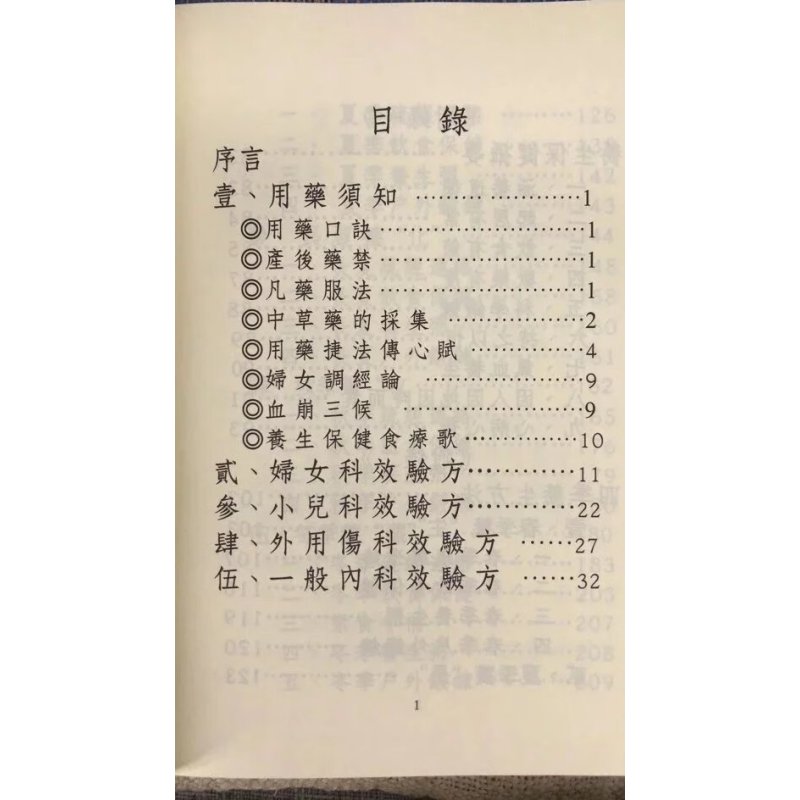 目　錄
序言
壹、用藥須知 ……… ………1
◎用藥口訣………………………1
◎產後藥禁………………………1
◎凡藥服法………………………1
◎中草藥的採集 ………………2
◎用藥捷法傳心賦………………4
◎婦女調經論 …………………9
◎血崩三候 ……………………9
◎養生保健食療歌………………10
貳、婦女科效驗方…………11
參、小兒科效驗方…………22
肆、外用傷科效驗方 ……27
伍、一般內科效驗方 ……32
1